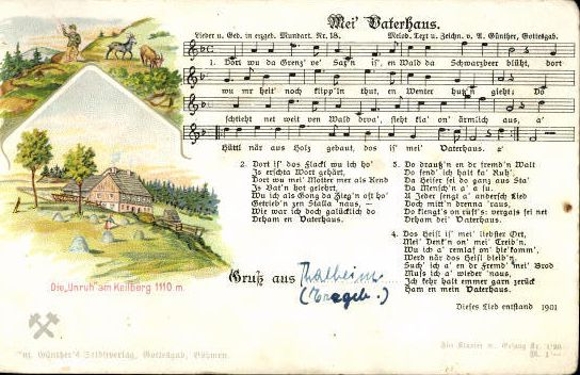 Mei' Vaterhaus.
Lieder u. Ged. in erzgeb. Mundart. Nr. 18. Melod. Text u. Zeichn. v. A. Günther, Gottesgab.
1. Dort wu da Grenz' ve' Sax'n is', en Wald da Schwarzbeer blüht, dort
wu mr heit' noch klipp'ln thut, en Winter hutz'n gieht; Do
schtieht net weit ven Wald drva', sieht kla' on' ärmlich aus, a'
Hüttl när aus Holz gebaut, dos is' mei' Vaterhaus. a'
2. Dort is' dos Flackl wu ich ho'
Js erschta Wort gehärt,
Dort wu mei' Motter mer als Kend
Js Bat'n hot gelehrt,
Wu ich als Gong da Zieg'n oft ho'
Getrieb'n zen Stalla 'naus, —
Wie war ich doch galücklich do
Drham en Vaterhaus.
3. Do drauß'n en dr fremd'n Walt
Do fend' ich halt ka' Ruh',
Da Heiser sei do ganz aus Sta'
Da Mensch'n a' a su.
U Jeder sengt a' andersch Lied
Doch mitt'n drenna 'raus,
Do klengt's on ruft's: vergais sei net
Drham dei' Vaterhaus.
4. Dos Heisl is' mei' liebster Ort,
Mei' Denk'n on' mei' Treib'n,
Wu ich a' remlaf on' hie'komm',
Werd när dos Heisl bleib'n.
Such' ich a' en dr Fremd' mei' Brod
Muß ich a' wieder 'naus,
Ich kehr halt emmer garn zerück
Ham en mein Vaterhaus.
Dieses Lied entstand 1901
Die „Unruh" am Keilberg 1110 m.
Gruß aus Thalheim
(Erzgeb.)
Günther's Selbstverlag, Gottesgab, Böhmen.
Für Klavier u. Gesang